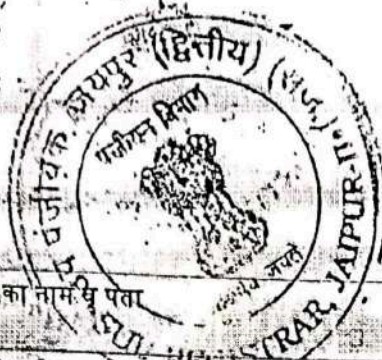 उप पंजीयक, जयपुर (द्वितीय) (राज.)
पंजीयन विभाग
सत्यमेव जयते
REGISTRAR, JAIPUR-II
का नाम व पता